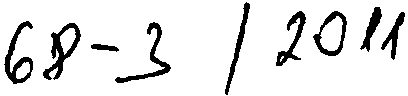 68-3 / 2011